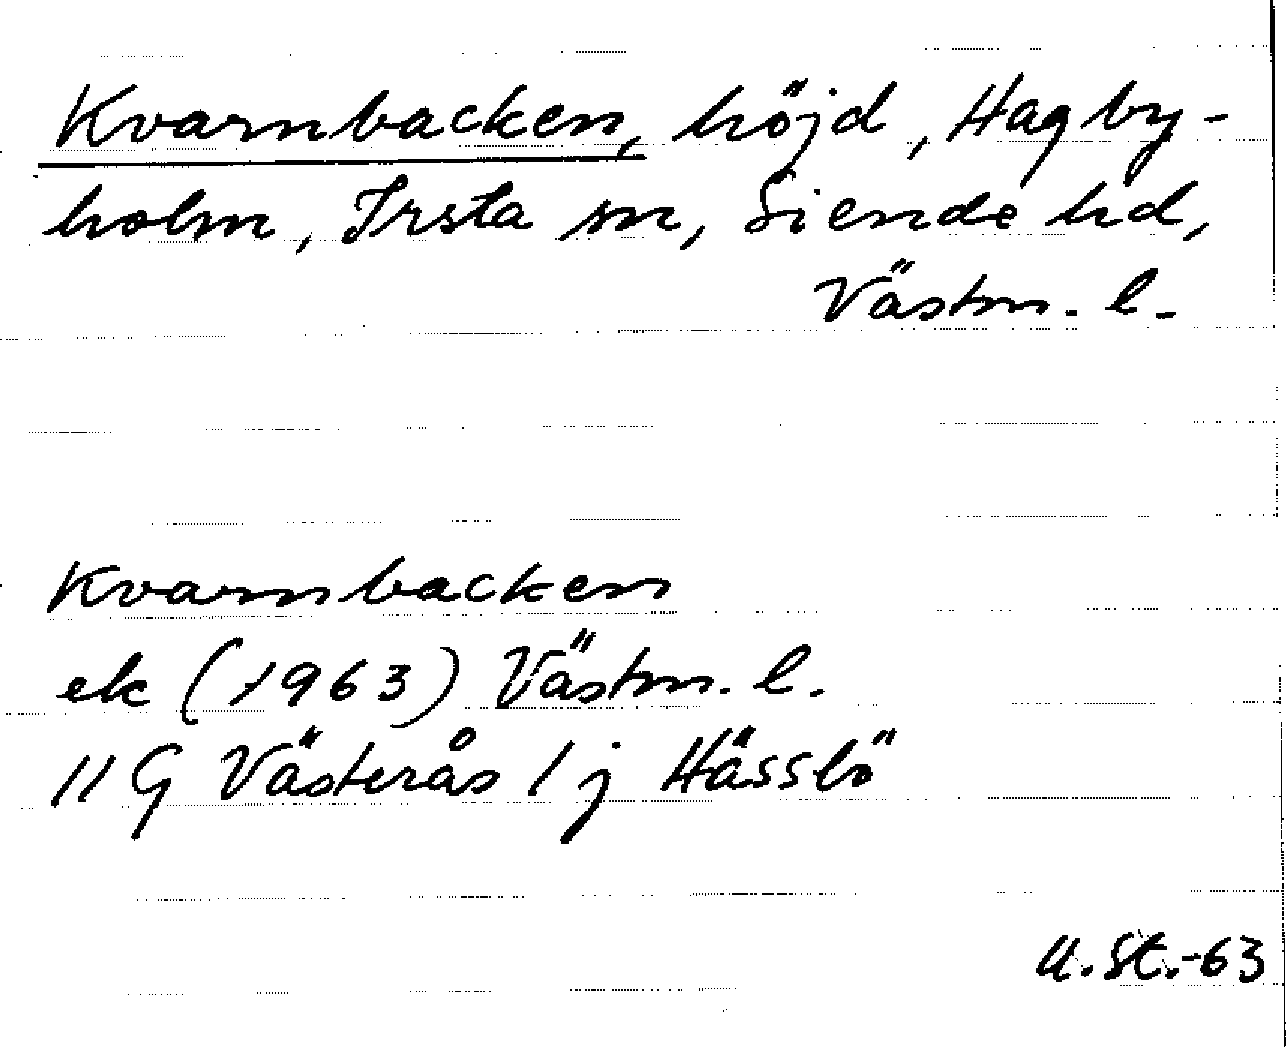 Kvarnbacken, höjd, Hagby-
holm, Irsta sn, Siende hd,
Västm. l.
Kvarnbacken
ek (1963) Västm. l.
11 G Västerås 1 j Hässlö
U.St.-63